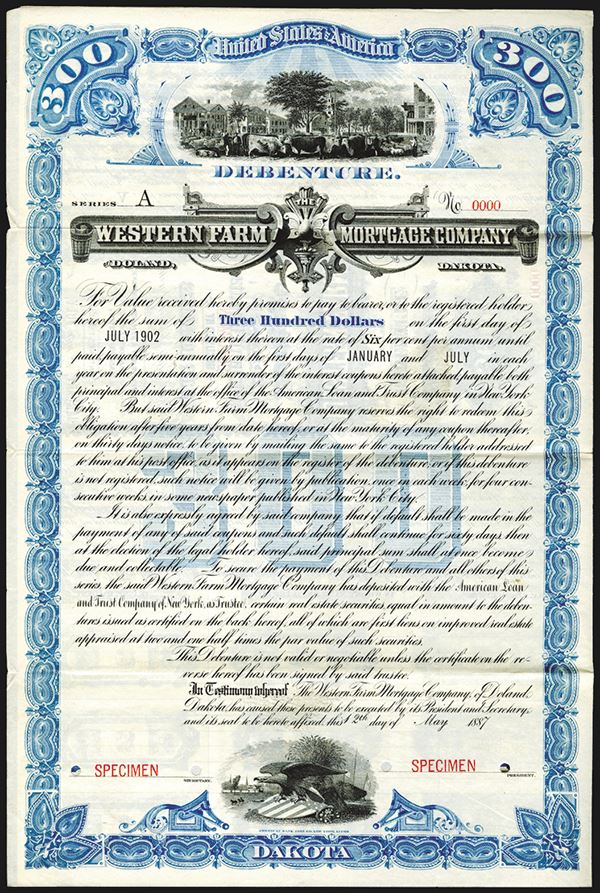 300 United States of America 300
DEBENTURE.
SERIES A No. 0000
THE
WESTERN FARM MORTGAGE COMPANY
DOLAND, DAKOTA.
For Value received hereby promises to pay to bearer, or to the registered holder
hereof the sum of Three Hundred Dollars on the first day of
JULY 1902 with interest thereon at the rate of Six per cent per annum until
paid, payable semi-annually on the first days of JANUARY and JULY in each
year on the presentation and surrender of the interest coupons hereto attached, payable both
principal and interest at the office of the American Loan and Trust Company in New York
City. But said Western Farm Mortgage Company reserves the right to redeem this
obligation after five years from date hereof, or at the maturity of any coupon thereafter,
on thirty days notice, to be given by mailing the same to the registered holder addressed
to him at his post office, as it appears on the register of the debenture, or if this debenture
is not registered, such notice will be given by publication, once in each week, for four con-
secutive weeks, in some newspaper published in New York City.
It is also expressly agreed by said company that if default shall be made in the
payment of any of said coupons and such default shall continue for sixty days, then
at the election of the legal holder hereof, said principal sum shall at once become
due and collectable. To secure the payment of this Debenture and all others of this
series, the said Western Farm Mortgage Company has deposited with the American Loan
and Trust Company of New York, as Trustee, certain real estate securities, equal in amount to the deben-
tures issued as certified on the back hereof, all of which are first liens on improved real estate
appraised at two and one half times the par value of such securities.
This Debenture is not valid or negotiable unless the certificate on the re-
verse hereof has been signed by said trustee.
In Testimony whereof The Western Farm Mortgage Company, of Doland,
Dakota, has caused these presents to be executed by its President and Secretary,
and its seal to be hereto affixed, this 12th day of May 1887
SPECIMEN SPECIMEN
SECRETARY. PRESIDENT.
DAKOTA
300